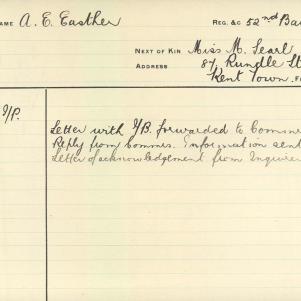 NAME A. E. Easther REG. &C 52nd Ba
NEXT OF KIN Miss M. Searl
ADDRESS 84, Rundle St
Kent Town.
I/P.
Letter with I/B. forwarded to Commr
Reply from Commrs. Information sent
Letter of acknowledgement from Inquirer